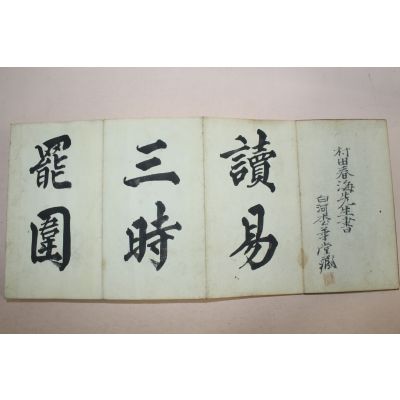 村田春海先生書
白河
堂藏
讀易
三時
罷圍